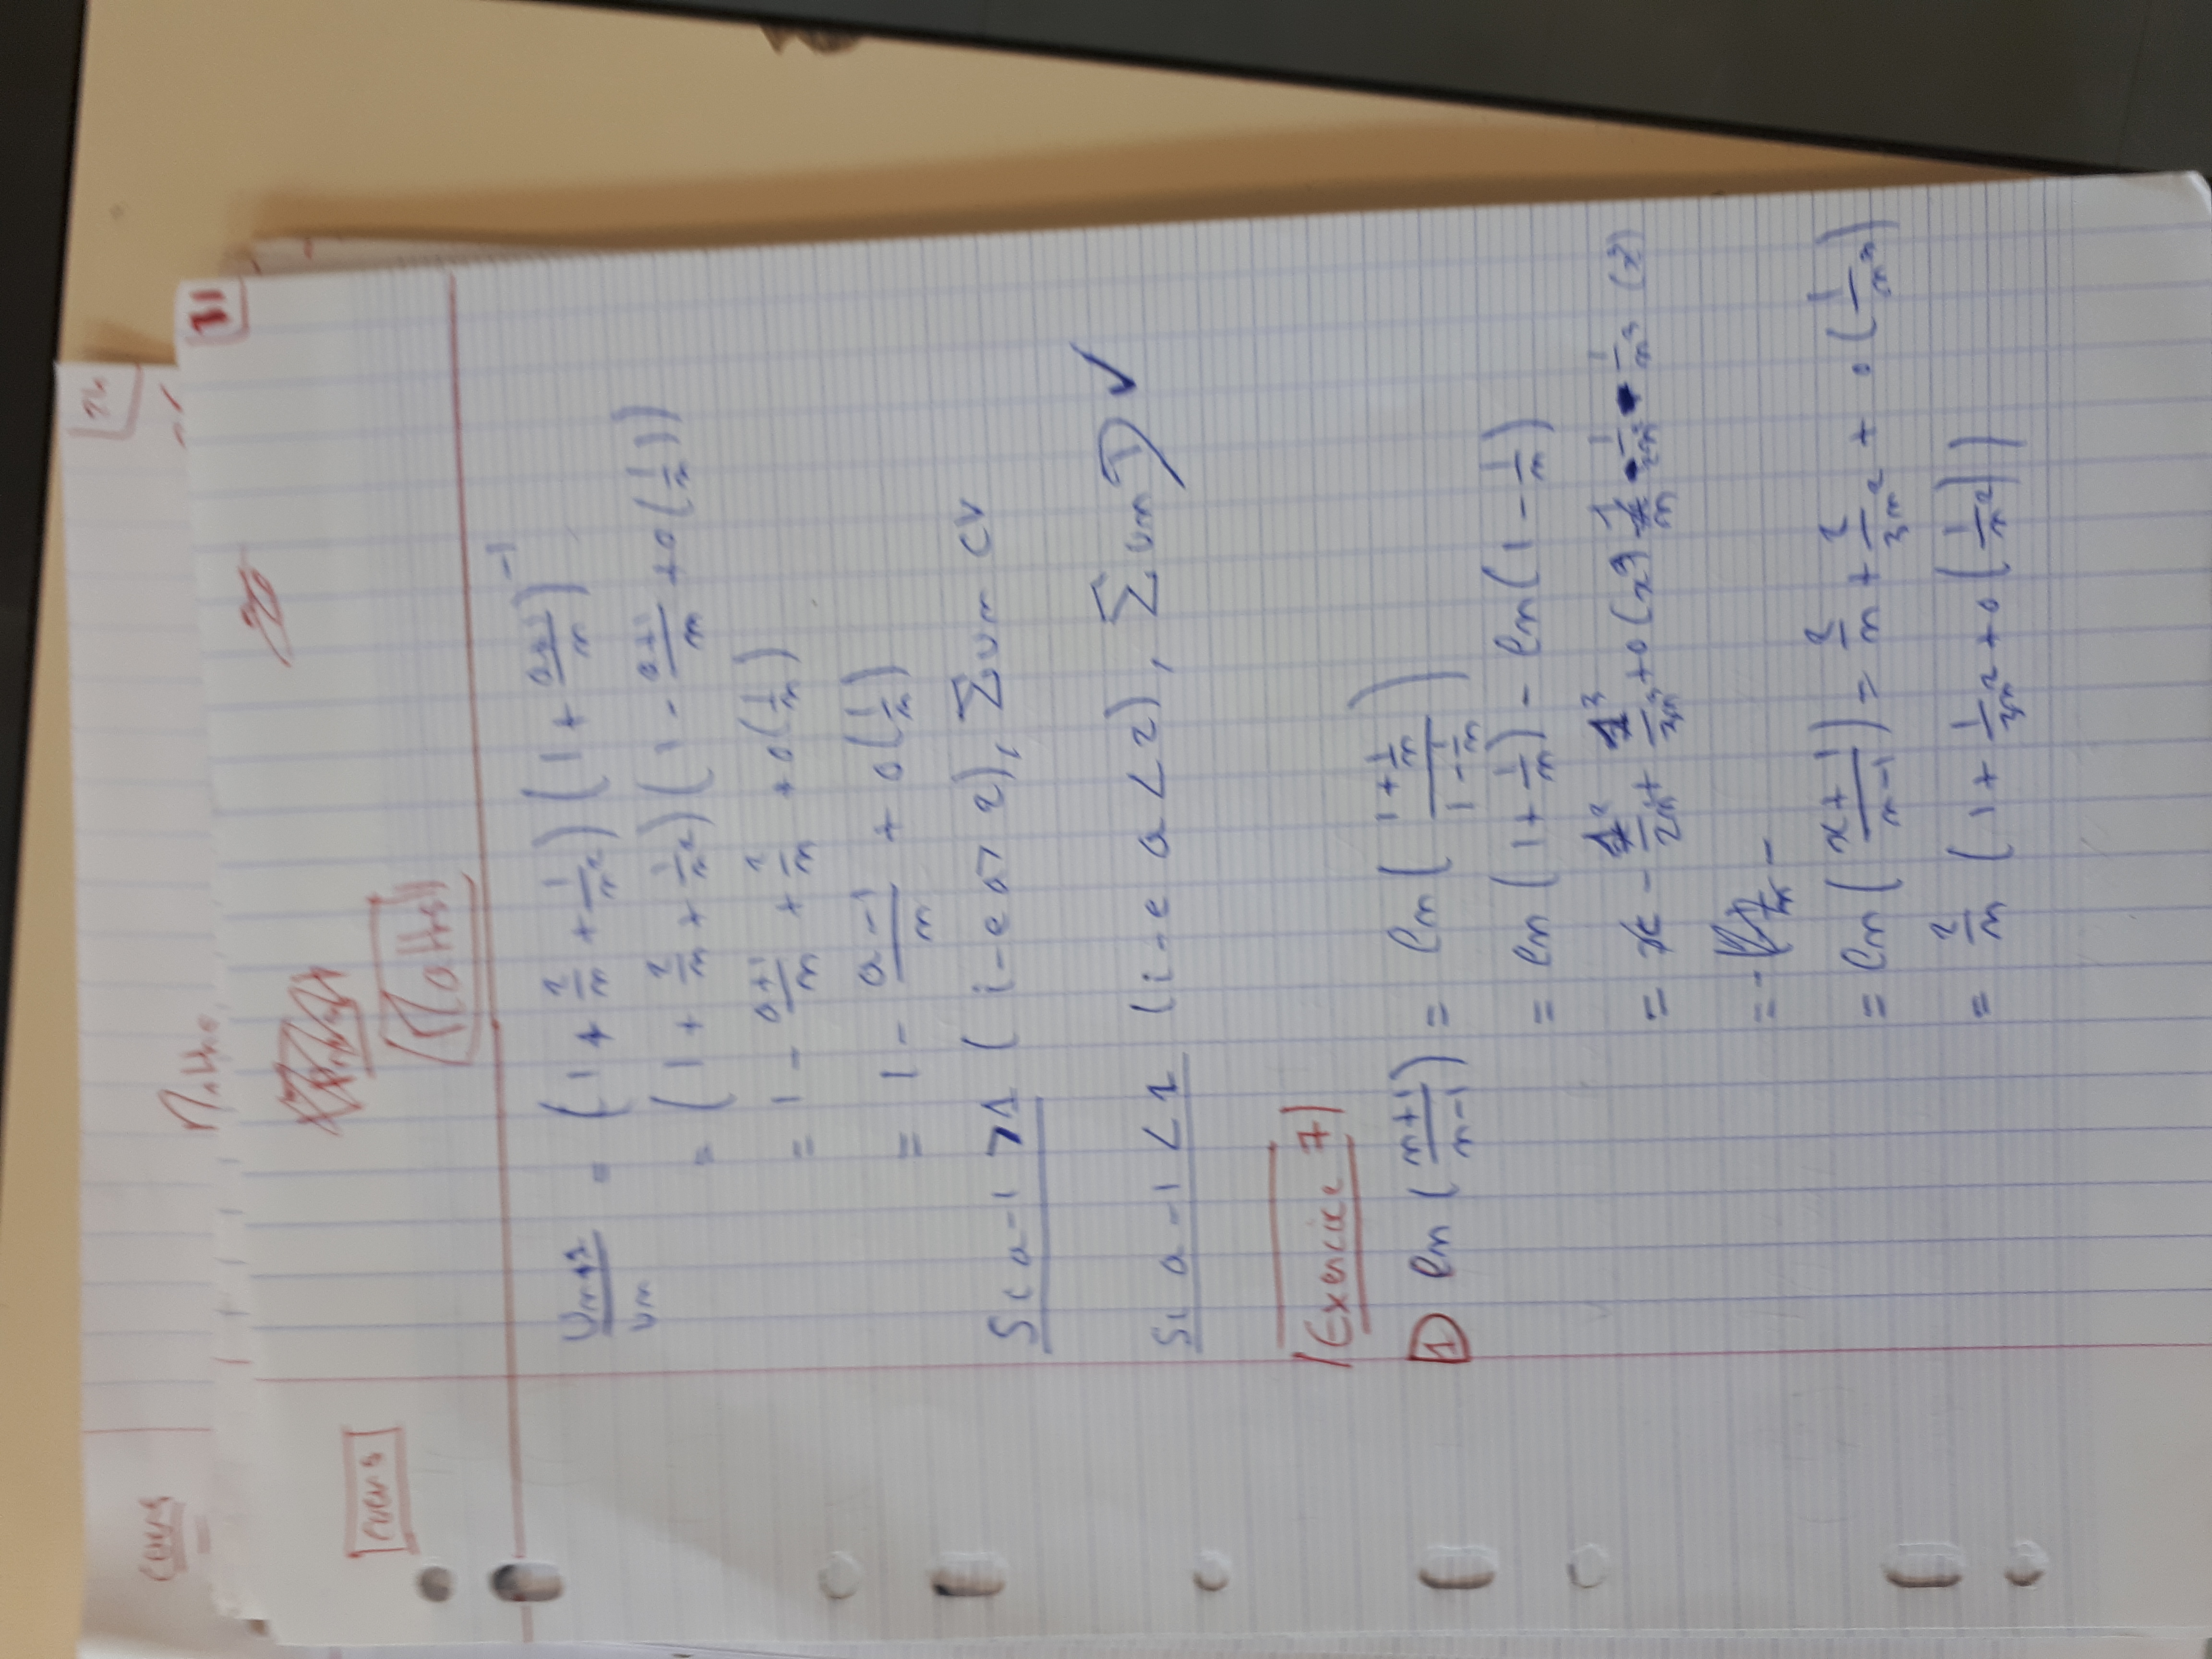 cours
Maths
11
cours
Maths
U_{n+1}/u_n = (1 + 2/n + 1/n²)(1 + (a+1)/n)^{-1}
= (1 + 2/n + 1/n²)(1 - (a+1)/n + o(1/n))
= 1 - (a+1)/n + 2/n + o(1/n)
= 1 - (a-1)/n + o(1/n)
Si a-1 > 1 (i-e a > 2), Σ un CV
Si a-1 < 1 (i-e a < 2), Σ un D ✓
Exercice 7
① ln((n+1)/(n-1)) = ln((1+1/n)/(1-1/n))
= ln(1+1/n) - ln(1-1/n)
= x - 1²/2n² + 1³/3n³ + o(x³) 1/n
= -
= ln((x+1)/(n-1)) = 2/n + 2/3n² + o(1/n³)
= 2/n (1 + 1/3n² + o(1/n²))